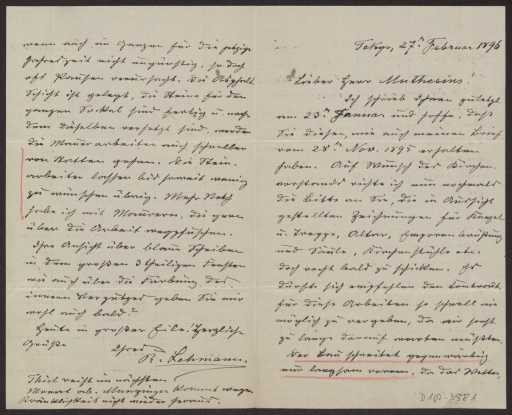 Tokyo, 27ⁿ Februar 1896
Lieber Herr Muthesius!
Ich schrieb Ihnen zuletzt
am 23ⁿ Januar und hoffe, daß
Sie diesen, wie auch meinen Brief
vom 28ⁿ Nov. 1895 erhalten
haben. Auf Wunsch des Kirchen-
vorstands richte ich nun nochmals
die Bitte an Sie, die in Aussicht
gestellten Zeichnungen für Kanzel
u. Treppe, Altar, Emporenbrüstung
und Säule, Kirchenstühle etc.
doch recht bald zu schicken. Es
dürfte sich empfehlen den Contract
für diese Arbeiten so schnell wie
möglich zu vergeben, da wir sonst
zu lange darauf warten müßten.
Der Bau schreitet gegenwärtig
nur langsam voran, da das Wetter,
wenn auch im Ganzen für die jetzige
Jahreszeit nicht ungünstig, so doch
oft Pausen verursacht. Die Asphalt
Schicht ist gelegt, die Steine für den
ganzen Sockel sind fertig u. nach-
dem dieselben versetzt sind, werden
die Maurerarbeiten auch schneller
von Statten gehen. Die Stein-
arbeiten lassen bis soweit wenig
zu wünschen übrig. Mehr Noth
habe ich mit Maurern, die gern
über die Arbeit wegpfuschen.
Ihre Ansicht über blaue Scheiben
in dem großen 3theiligen Fenster
wie auch über die Färbung des
inneren Verputzes geben Sie mir
wohl auch bald?
Heute in großer Eile! Herzliche
Grüße
Ihres
R. Lehmann.
Thiel reist im nächsten
Monat ab. Munzinger kommt wegen
Kränklichkeit nicht wieder heraus.